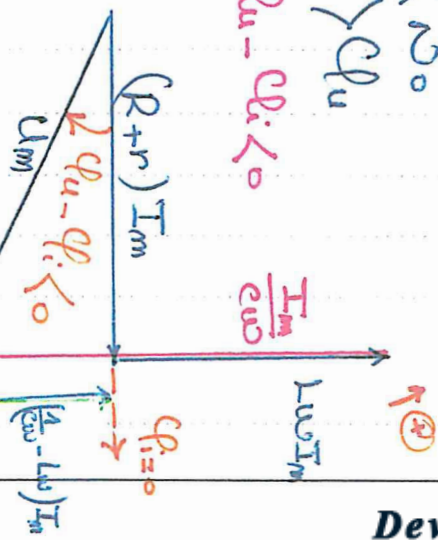 φu
φu - φi < 0
(R+r) Im
φu - φi < 0
Um
Im/Cω
LωIm
φi = 0
(1/Cω - Lω) Im
+
Dev